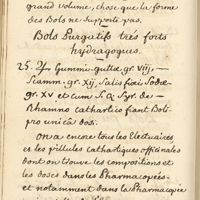 grand volume, chose que la forme
des Bols ne supporte pas.
Bols Purgatifs très forts
hydragogues.
25. ♃ Gummi-guttæ gr. viij, —
Scamm. gr. xij, Salis fixi Sodæ
gr. xv et cum S. Q. Syr. de
Rhamno cathartico fiant Boli
pro unica dosi.
On a encore tous les Electuaires
et les pillules cathartiques officinales
dont on trouve les compositions et
les doses dans les Pharmacopées
et notamment dans la Pharmacopée